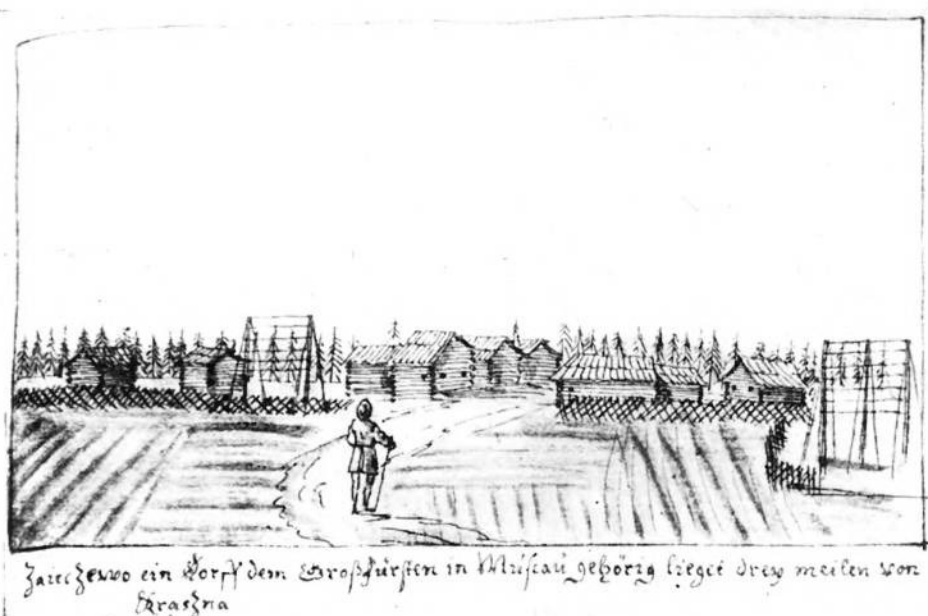 Zaieczewo ein Dorff dem Großfürsten in Muscau gehörig lieget drey meilen von
Kraszna